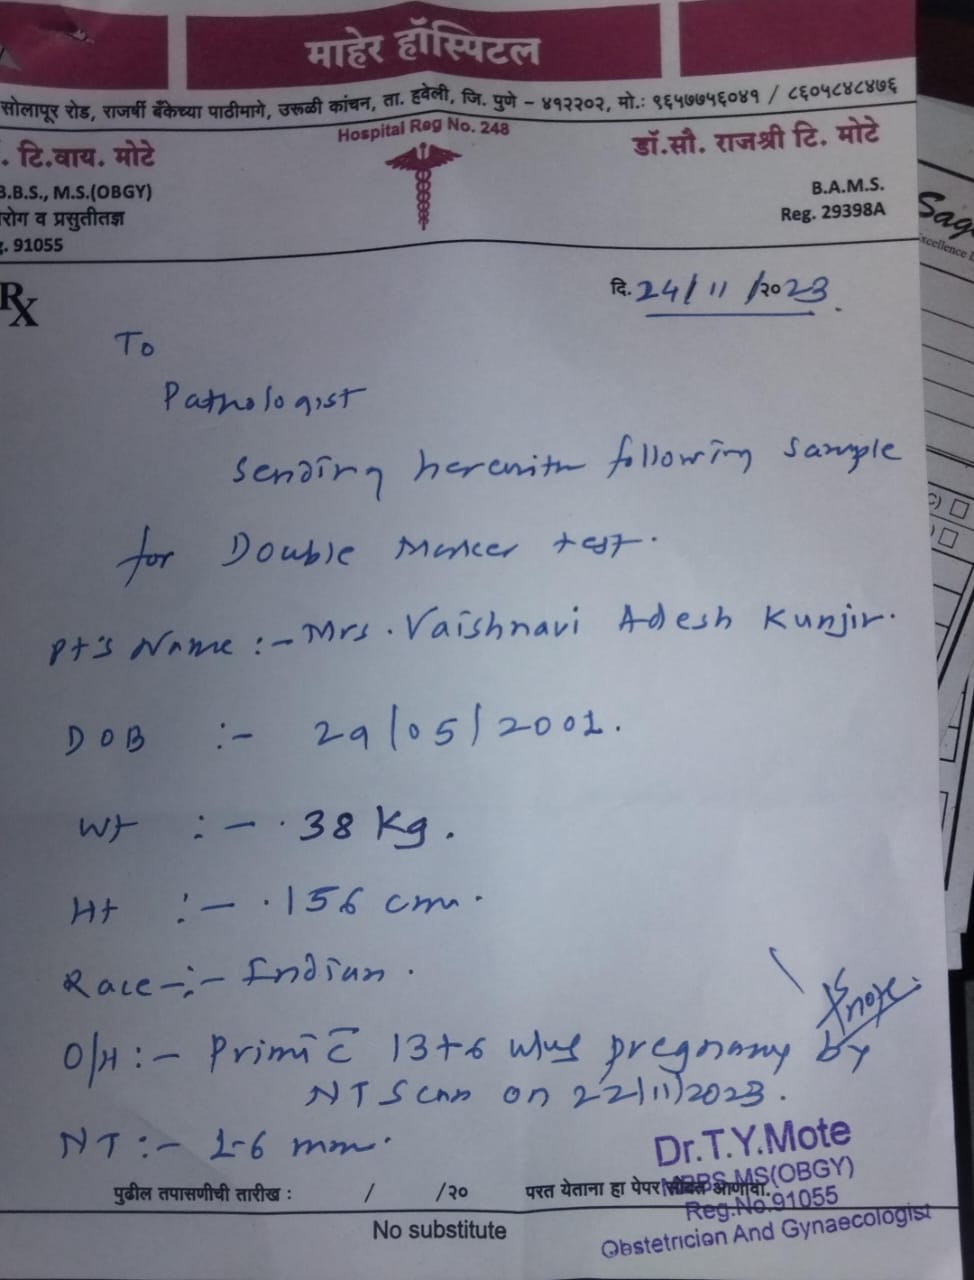 माहेर हॉस्पिटल
सोलापूर रोड, राजर्षी बँकेच्या पाठीमागे, उरूळी कांचन, ता. हवेली, जि. पुणे - ४१२२०२, मो.: ९६५७७५६०४१ / ८६०५८४८४७६
Hospital Reg No. 248
. टि.वाय. मोटे
डॉ.सौ. राजश्री टि. मोटे
B.B.S., M.S.(OBGY)
B.A.M.S.
रोग व प्रसुतीतज्ञ
Reg. 29398A
g. 91055
Rx
दि. 24/11/२०23.
To
Pathologist
Sending herewith following sample
for Double Marker test.
Pt's Name :- Mrs. Vaishnavi Adesh Kunjir.
DOB :- 29/05/2001.
Wt :- 38 Kg.
Ht :- 156 cm.
Race :- Indian.
O/H :- Primi c̄ 13+6 wks pregnancy by
NT Scan on 22/11/2023.
NT :- 1.6 mm.
Dr.T.Y.Mote
MBBS MS(OBGY)
Reg.No.91055
Obstetrician And Gynaecologist
पुढील तपासणीची तारीख : / /२०
परत येताना हा पेपर सोबत आणावा.
No substitute
Sag
xcellence